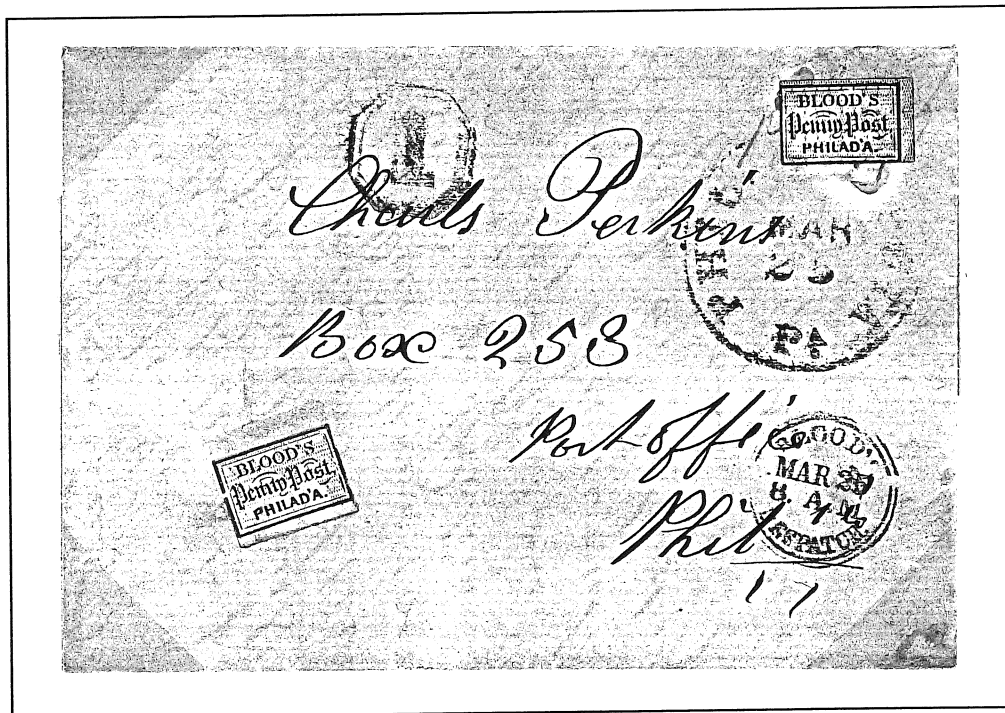 1
BLOOD'S
Penny Post
PHILAD'A.
Charuls Perkins
MAR
25
Pa
Box 258
Post offic
BLOOD'S
MAR
8. A. M.
DESPATCH
BLOOD'S
Penny Post
PHILAD'A.
Phil
17